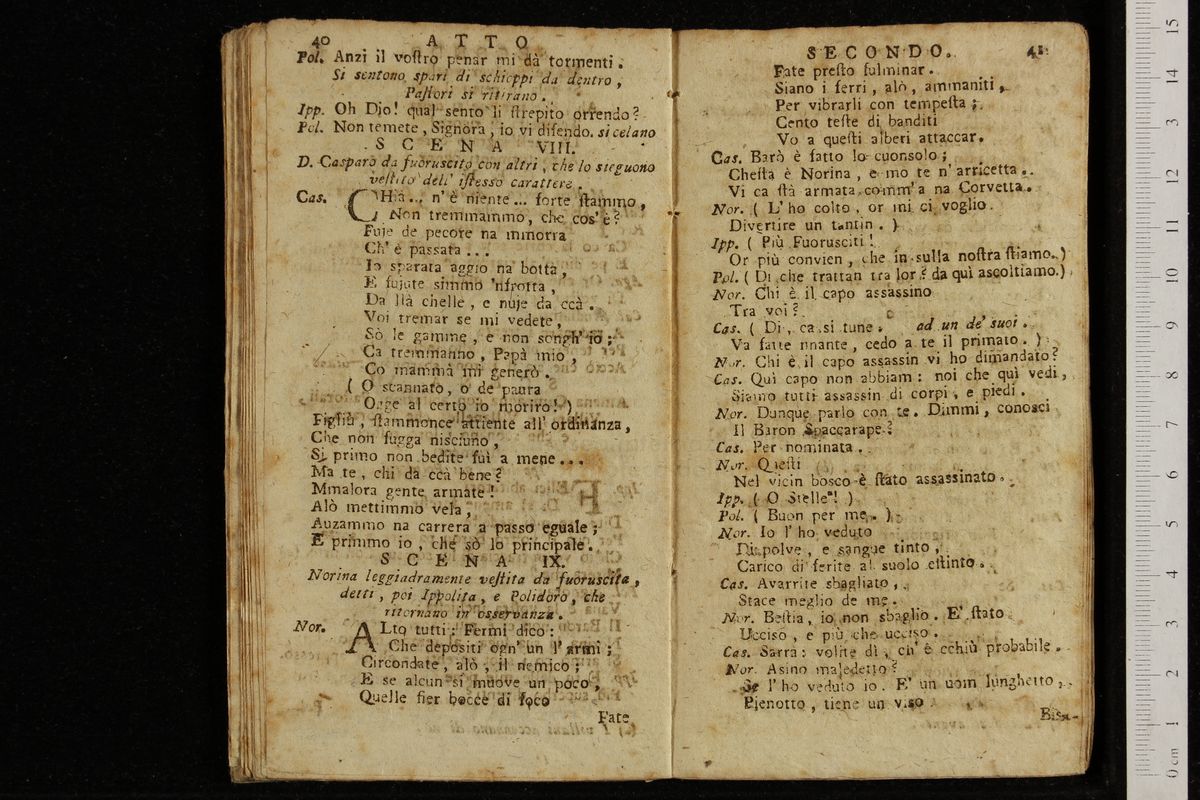 40 ATTO
Pol. Anzi il voſtro penar mi dà tormenti.
Si sentono spari di schioppi da dentro,
Paſtori si ritirano.
Ipp. Oh Dio! qual sento li ſtrepito orrendo?
Pol. Non temete, Signora, io vi difendo. si celano
SCENA VIII.
D. Casparo da fuoruscito con altri, che lo sieguono
veſtito dell' iſtesso carattere.
Cas. CHià... n'è niente... forte ſtammo,
Non tremmammo, che cos'è?
Fuje de pecore na mmorra
Ch'è passata...
Io sparata aggio na botta,
E fujute simmo 'nfrotta,
Da llà chelle, e nuje da ccà.
Voi tremar se mi vedete,
Sò le gamme, e non songh'io;
Ca tremmanno, Papà mio,
Co mammà mi generò.
( O scannato, o de paura
Ogge al certo io moriro! )
Figliù, ſtammonce attiente all' ordinanza,
Che non fugga nisciuno,
Si primo non bedite fuì a mene...
Ma te, chi da ccà bene?
Mmalora gente armate!
Alò mettimmo vela,
Auzammo na carrera a passo eguale;
E primmo io, che sò lo principale.
SCENA IX.
Norina leggiadramente veſtita da fuoruscita,
detti, poi Ippolita, e Polidoro, che
ritornano in osservanza.
Nor. ALto tutti: Fermi dico:
Che depositi ogn'un l'armi;
Circondate, alò, il nemico;
E se alcun si muove un poco,
Quelle fier bocce di foco
Fate
SECONDO. 41
Fate preſto fulminar.
Siano i ferri, alò, ammaniti,
Per vibrarli con tempeſta;
Cento teſte di banditi
Vo a queſti alberi attaccar.
Cas. Barò è fatto lo cuonsolo;
Cheſta è Norina, e mo te n'arricetta.
Vi ca ſtà armata comm'a na Corvetta.
Nor. ( L'ho colto, or mi ci voglio
Divertire un tantin. )
Ipp. ( Più Fuorusciti!
Or più convien, che in sulla noſtra ſtiamo. )
Pol. ( Di che trattan tra lor? da quì ascoltiamo. )
Nor. Chi è il capo assassino
Tra voi?
Cas. ( Di, ca si tune. ad un de' suoi.
Va fatte nnante, cedo a te il primato. )
Nor. Chi è il capo assassin vi ho dimandato?
Cas. Quì capo non abbiam: noi che quì vedi,
Siamo tutti assassin di corpi, e piedi.
Nor. Dunque parlo con te. Dimmi, conosci
Il Baron Spaccarape?
Cas. Per nominata.
Nor. Queſti
Nel vicin bosco è ſtato assassinato.
Ipp. ( O Stelle! )
Pol. ( Buon per me. )
Nor. Io l'ho veduto
Di polve, e sangue tinto,
Carico di ferite al suolo eſtinto.
Cas. Avarrite sbagliato,
Stace meglio de me.
Nor. Beſtia, io non sbaglio. E' ſtato
Ucciso, e più che ucciso.
Cas. Sarrà: volite dì, ch'è cchiù probabile.
Nor. Asino maledetto?
Se l'ho veduto io. E' un uom lunghetto,
Pienotto, tiene un viso